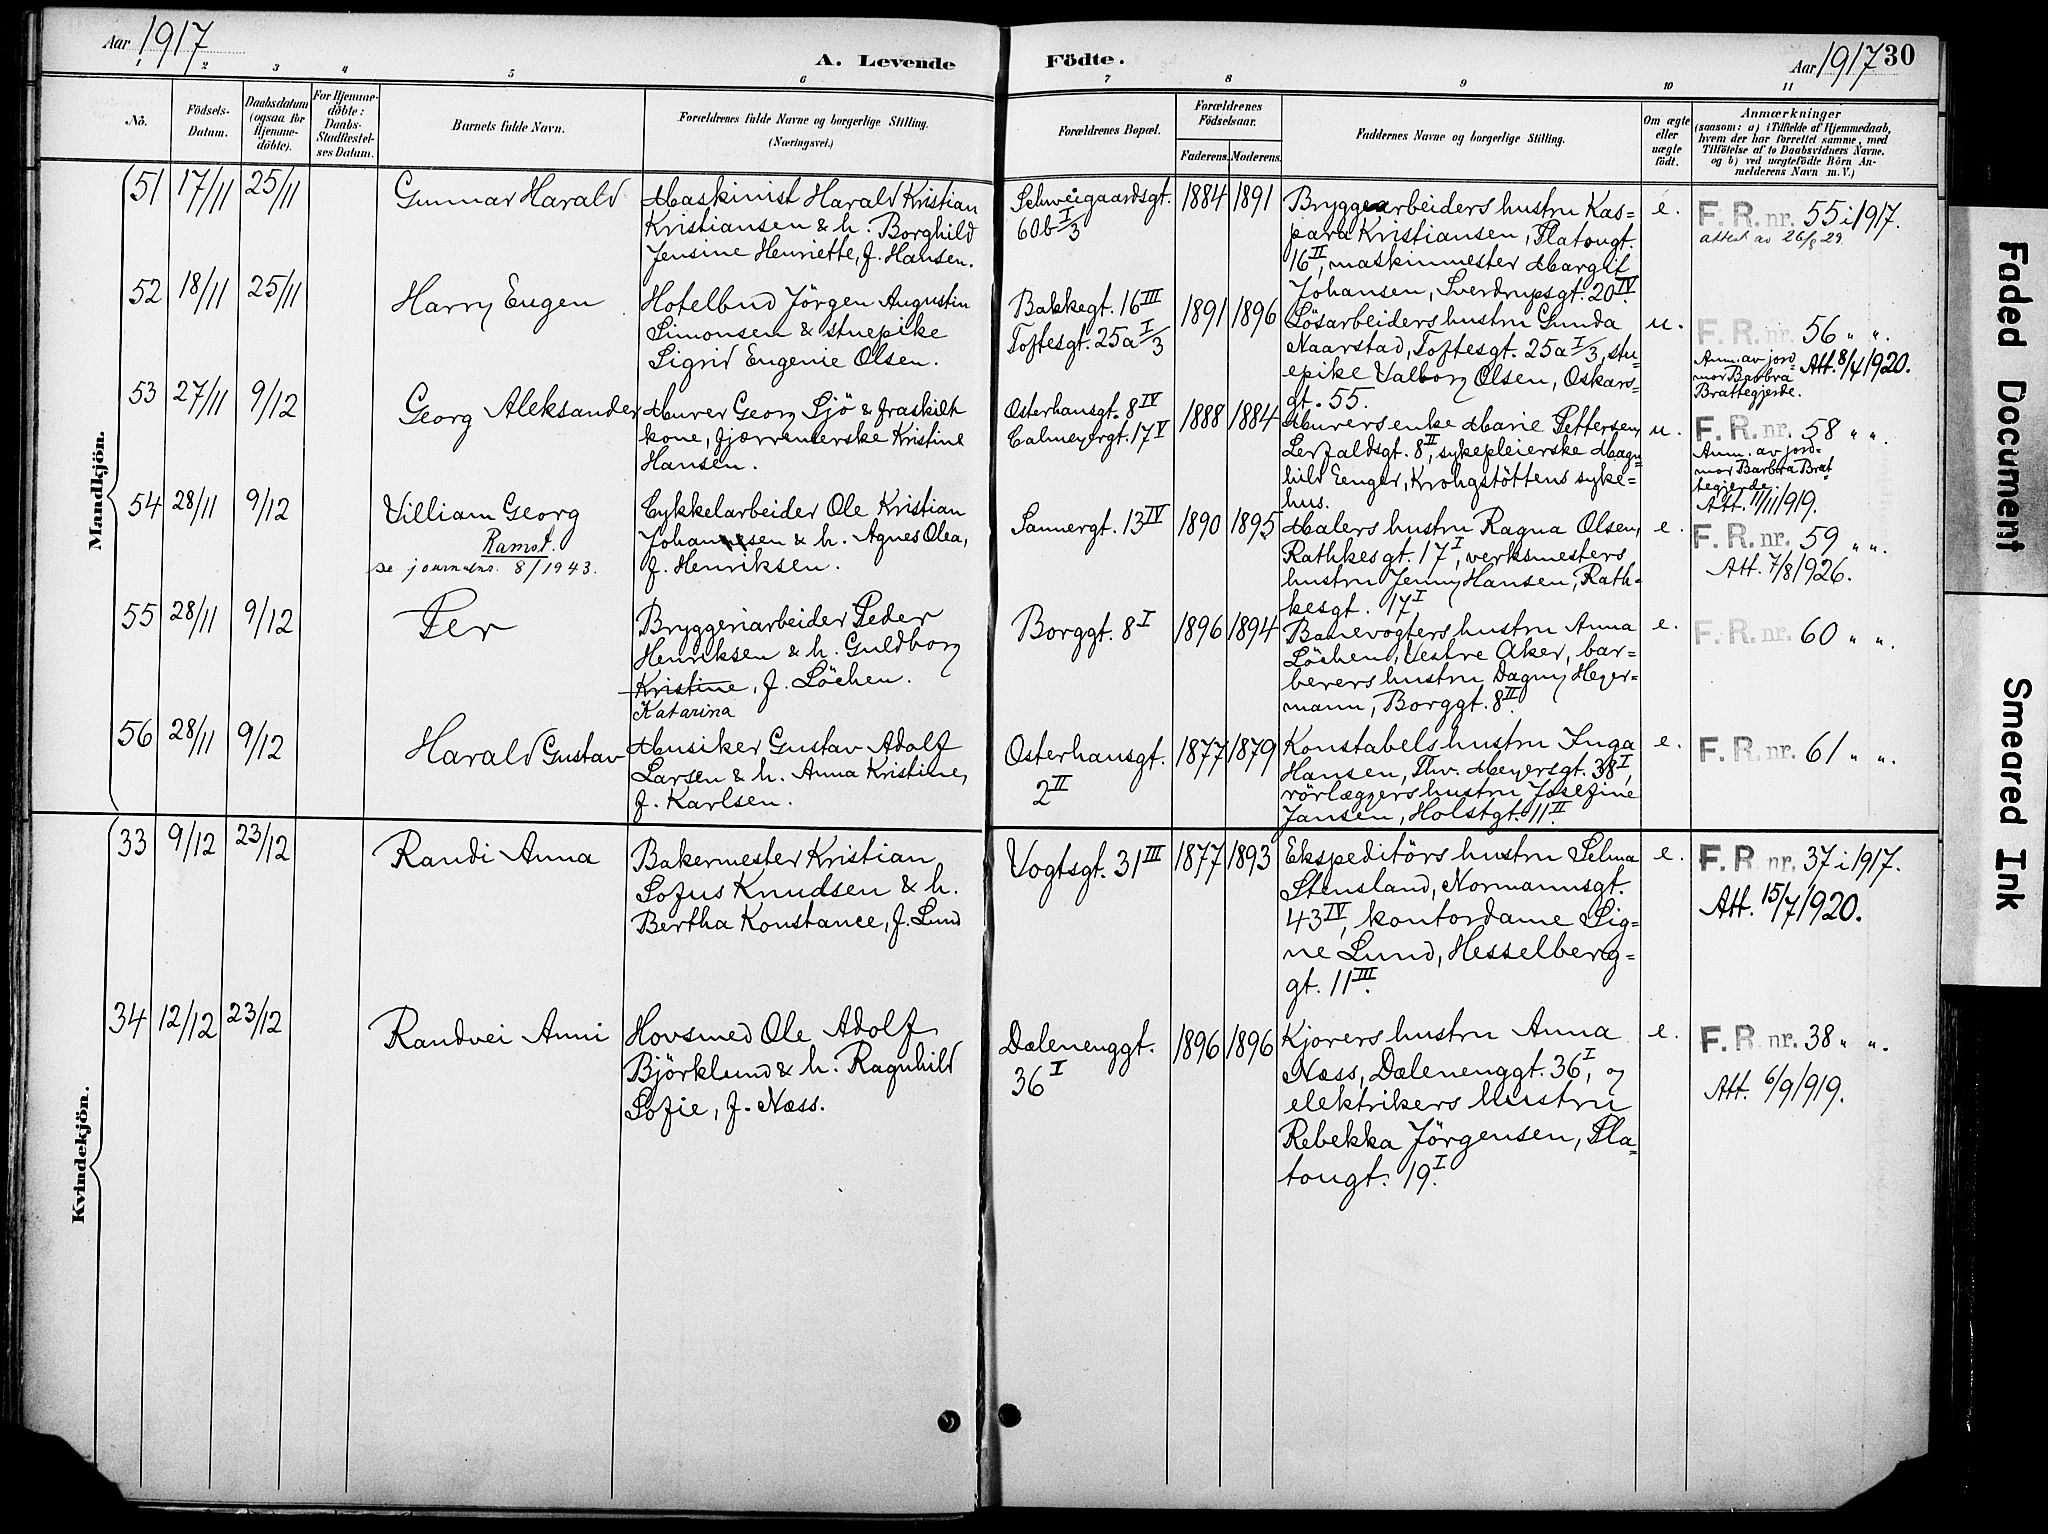 Aar 1917
A. Levende
Födte.
Aar 1917 30
1 2 3 4 5 6 7 8 9 10 11
Nö.
Födsels-
Datum.
Daabsdatum
(ogsaa for
Hjemme-
döbte).
For Hjemme-
döbte:
Daabs-
Stadfæstel-
ses Datum.
Barnets fulde Navn.
Forældrenes fulde Navne og borgerlige Stilling.
(Næringsvei.)
Forældrenes Bopæl.
Forældrenes
Födselsaar.
Faderens. Moderens.
Faddernes Navne og borgerlige Stilling.
Om ægte
eller
uægte
födt.
Anmærkninger
(saasom: a) i Tilfælde af Hjemmedaab,
hvem der har forrettet samme, med
Tilföielse af to Daabsvidners Navne,
og b) ved uægtefödte Börn An-
melderens Navn m. V.)
Mandkjön.
51 17/11 25/11
Gunnar Harald
Maskinist Harald Kristian
Kristiansen & h. Borghild
Jensine Henriette, f. Hansen.
Schweigaardsgt.
60b I/3
1884 1891
Bryggearbeiders hustru Kas-
para Kristiansen, Platougt.
16 II, maskinmester Margit
Johansen, Sverdrupsgt. 20 IV.
e.
F. R. nr. 55 i 1917.
52 18/11 25/11
Harry Eugen
Hotelbud Jörgen Augustin
Simonsen & stuepike
Sigrid Eugenie Olsen.
Bakkegt. 16 III
Toftesgt. 25a I/3
1891 1896
Lösarbeiders hustru Gunda
Naarstad, Toftesgt. 25a I/3, stu-
epike Valborg Olsen, Oskars-
gt. 55.
u.
F. R. nr. 56 " ".
Anm. av jord-
mor Barbra
Brattegjerde.
Att. 8/4 1920.
53 27/11 9/12
Georg Aleksander
Murer Georg Sjö & fraskilt
kone, fjærrenserske Kristine
Hansen.
Osterhausgt. 8 IV
Calmeyergt. 17 V
1888 1884
Murers enke Marie Pettersen,
Lerfaldsgt. 8 II, sykepleierske Mag-
hild Eenger, Krohgstöttens syke-
hus.
u.
F. R. nr. 58 " ".
Anm. av jord-
mor Barbra Brat-
tegjerde.
Att. 11/11 1919.
54 28/11 9/12
Villiam Georg
Ramst.
se journalnr. 8/1943.
Cykkelarbeider Ole Kristian
Johansen & h. Agnes Olea,
f. Henriksen.
Sannergt. 13 IV
1890 1895
Malers hustru Ragna Olsen,
Rathkesgt. 17 I, verksmesters
hustru Jenny Hansen, Rath-
kesgt. 17 I
e.
F. R. nr. 59 " ".
Att. 7/8 1926.
55 28/11 9/12
Per
Bryggeriarbeider Peder
Henriksen & h. Guldborg
Kristine, f. Löchen.
Katarina
Borggt. 8 I
1896 1894
Banevogters hustru Anna
Löchen, Vestre Aker, bar-
berers hustru Dagny Heyer-
mann, Borggt. 8 II.
e.
F. R. nr. 60 " ".
56 28/11 9/12
Harald Gustav
Musiker Gustav Adolf
Larsen & h. Anna Kristine,
f. Karlsen.
Osterhausgt.
2 II
1877 1879
Konstabels hustru Inga
Hansen, Thv. Meyersgt. 38 I,
rörlæggers hustru Josefine
Jansen, Holstgt. 11 II.
e.
F. R. nr. 61 " ".
Kvindekjön.
33 9/12 23/12
Randi Anna
Bakermester Kristian
Sofus Knudsen & h.
Bertha Konstance, f. Lund
Vogtsgt. 31 III
1877 1893
Ekspeditörs hustru Selma
Stensland, Normannsgt.
43 IV, kontordame Sig-
ne Lund, Hesselberg-
gt. 11 III.
e.
F. R. nr. 37 i 1917.
Att. 15/7 1920.
34 12/12 23/12
Randvei Anni
Hovsmed Ole Adolf
Björklund & h. Ragnhild
Sofie, f. Næss.
Dælenenggt.
36 I
1896 1896
Kjörers hustru Anna
Næss, Dælenenggt. 36 I, og
elektrikers hustru
Rebekka Jörgensen, Pla-
tougt. 19 I.
e.
F. R. nr. 38 " ".
Att. 6/9 1919.
Faded Document
Smeared Ink